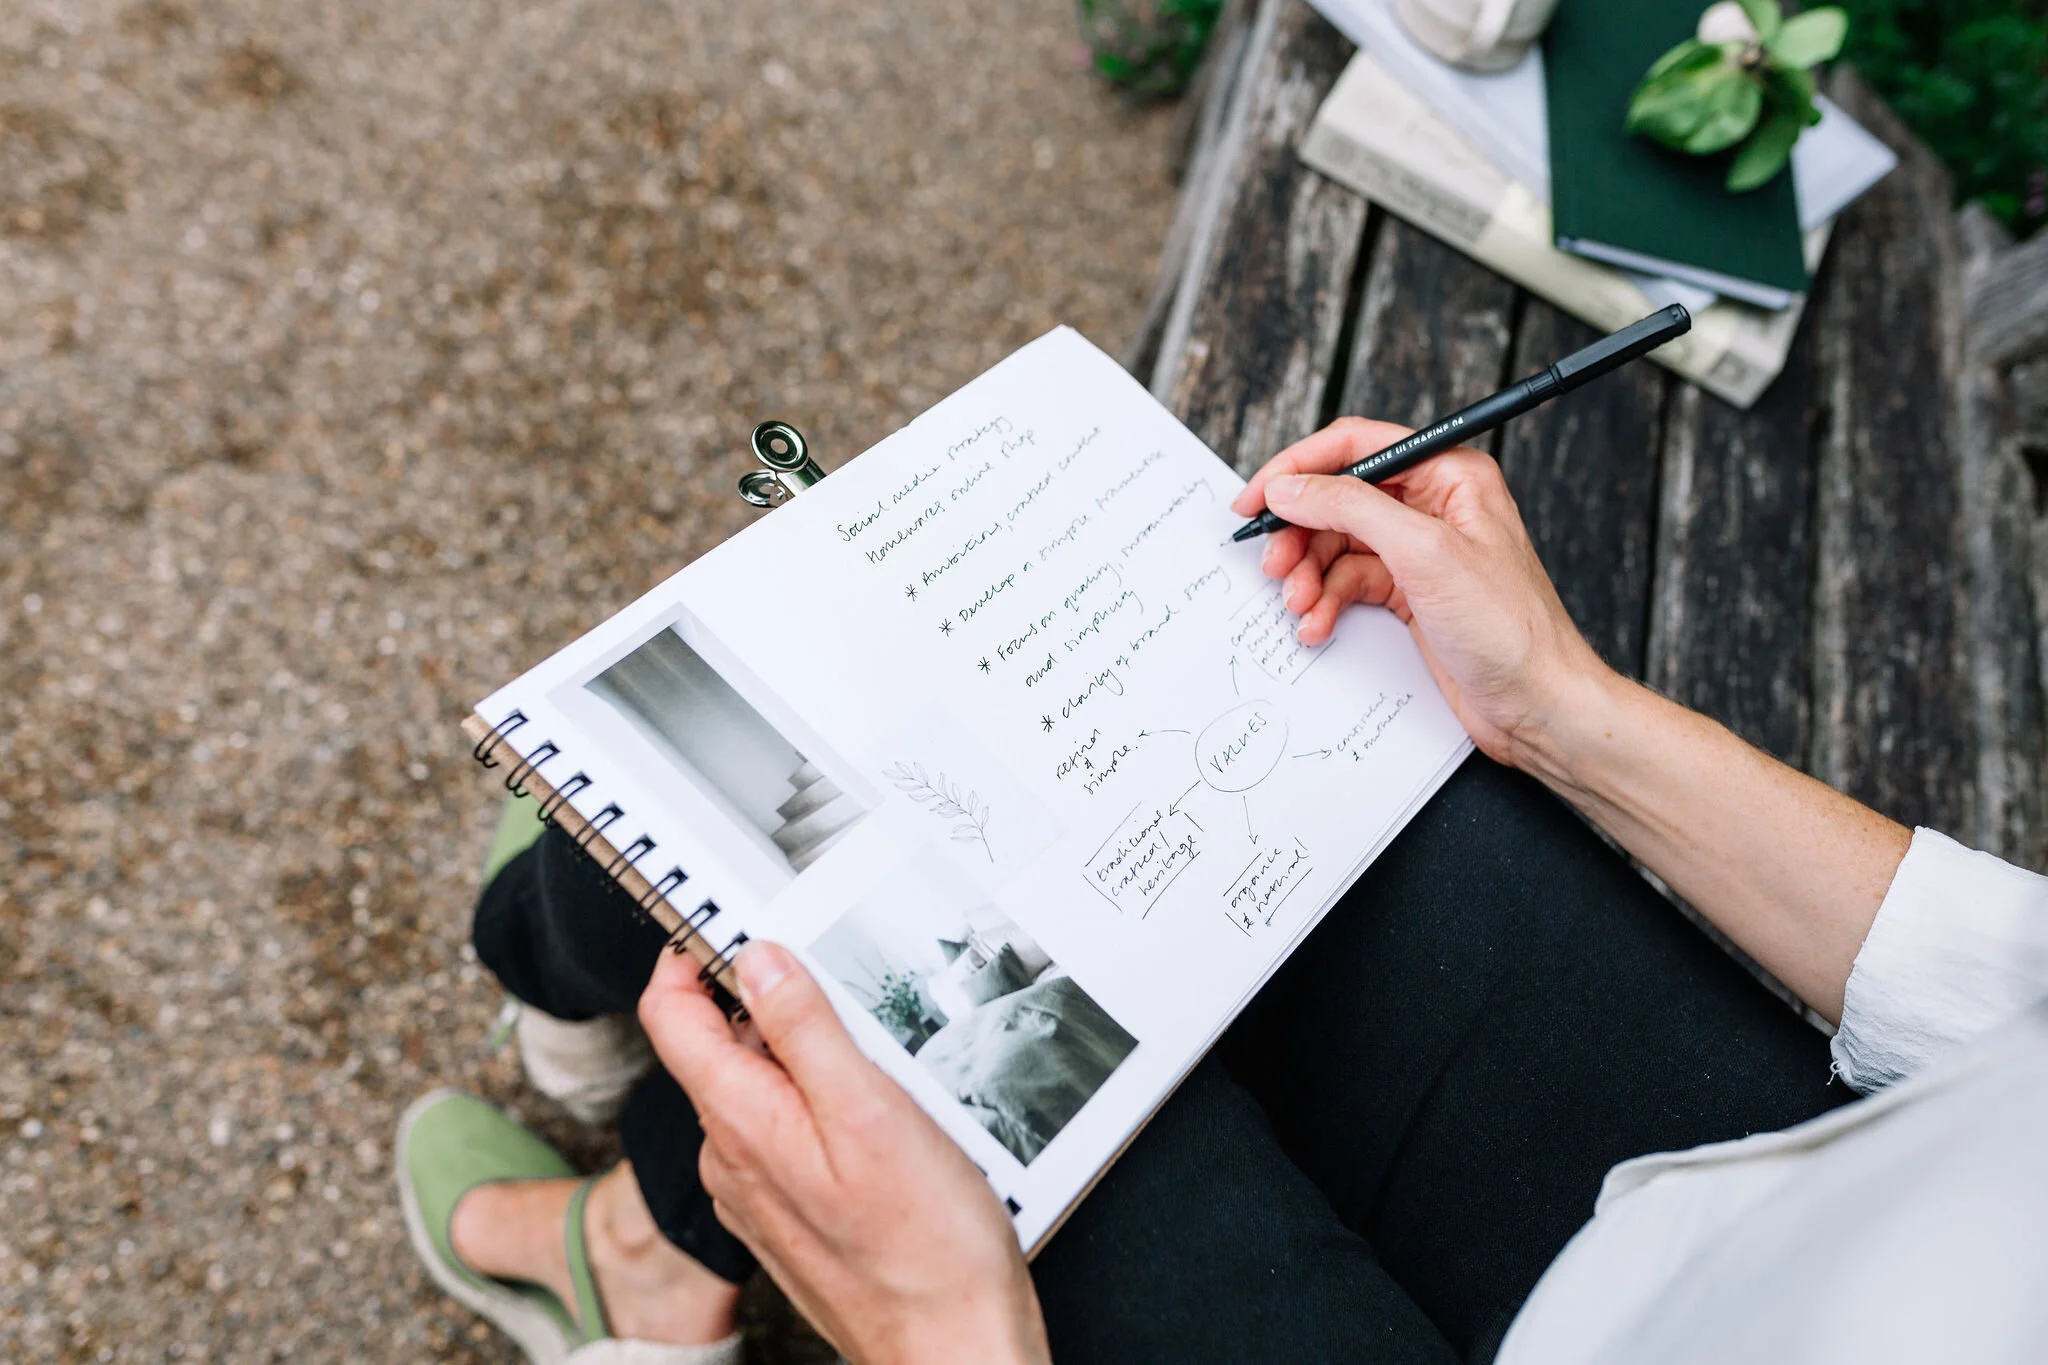 Social media strategy
Homewares online shop
* Ambitious, crafted content
* Develop a simple framework
* Focus on quality,
and simplicity
* Clarity of brand story
refined
&
simple.
VALUES
carefully
considered
consistent
& authentic
traditional
crafted /
heritage
organic
& natural
TRIESTE ULTRAFINE 04